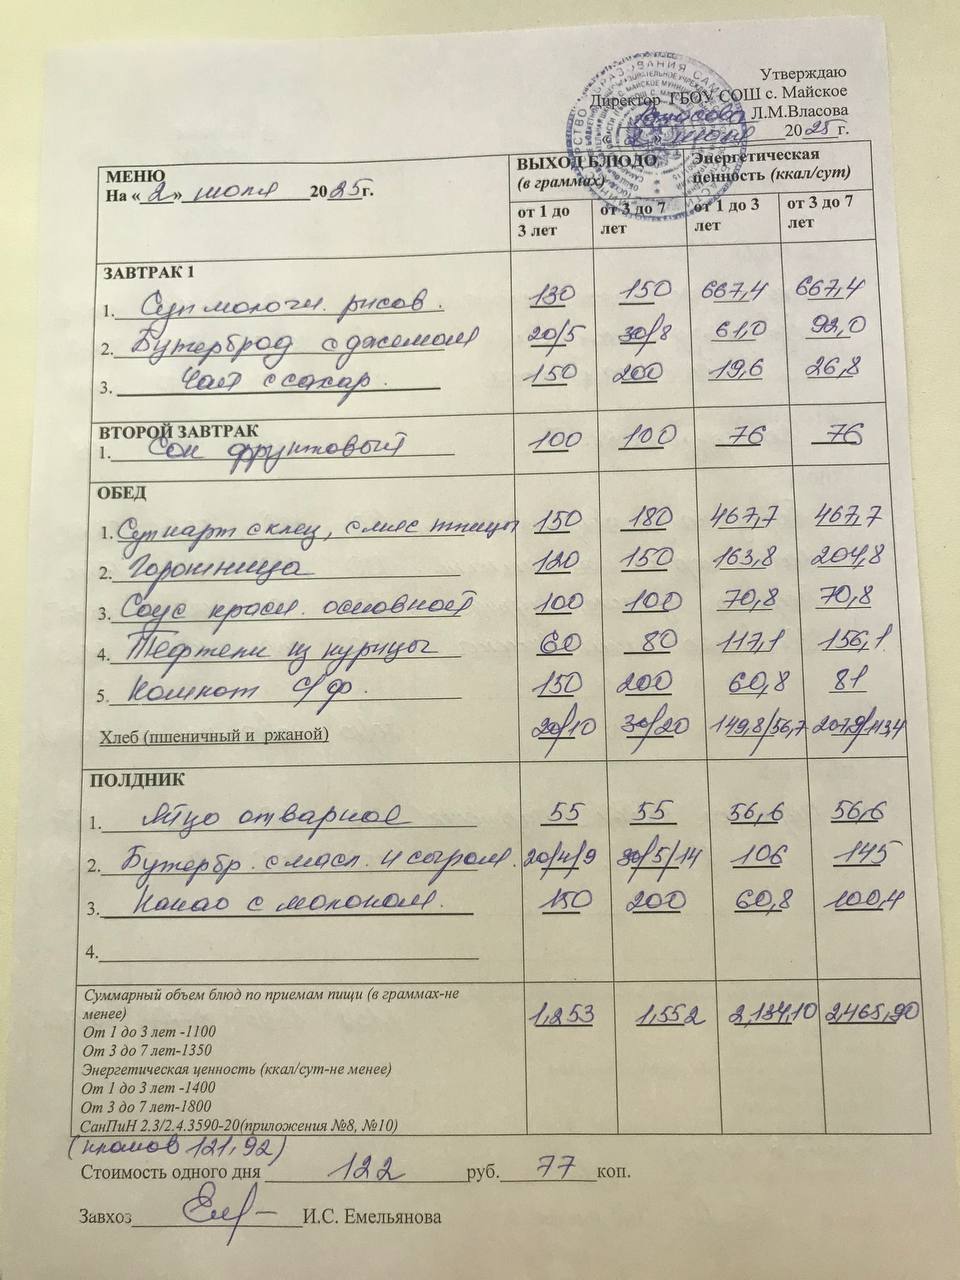 Утверждаю
Директор ГБОУ СОШ с. Майское
Л.М.Власова
«2» июля 2025 г.
МЕНЮ
На «2» июля 2025г.
ВЫХОД БЛЮДО (в граммах)
Энергетическая ценность (ккал/сут)
от 1 до 3 лет от 3 до 7 лет от 1 до 3 лет от 3 до 7 лет
ЗАВТРАК 1
1. Суп молочн. рисов. 130 150 667,4 667,4
2. Бутерброд с джемом 20/5 30/8 61,0 92,0
3. Чай с сахар. 150 200 19,6 26,8
ВТОРОЙ ЗАВТРАК
1. Сок фруктовый 100 100 76 76
ОБЕД
1. Суп карт с клец, с мяс птицы 150 180 467,7 467,7
2. Горошница 120 150 163,8 204,8
3. Соус красн. основной 100 100 70,8 70,8
4. Тефтели из курицы 60 80 117,1 156,1
5. Компот с/ф. 150 200 60,8 81
Хлеб (пшеничный и ржаной) 20/10 30/20 149,8/56,7 207,9/113,4
ПОЛДНИК
1. Яйцо отварное 55 55 56,6 56,6
2. Бутербр. с масл. и сыром. 20/4/9 30/5/14 106 145
3. Какао с молоком. 150 200 60,8 100,4
4.
Суммарный объем блюд по приемам пищи (в граммах-не 1,253 1,552 2,134,10 2,465,90
менее)
От 1 до 3 лет -1100
От 3 до 7 лет-1350
Энергетическая ценность (ккал/сут-не менее)
От 1 до 3 лет -1400
От 3 до 7 лет-1800
СанПиН 2.3/2.4.3590-20(приложения №8, №10)
121,92)
Стоимость одного дня 122 руб. 77 коп.
Завхоз И.С. Емельянова